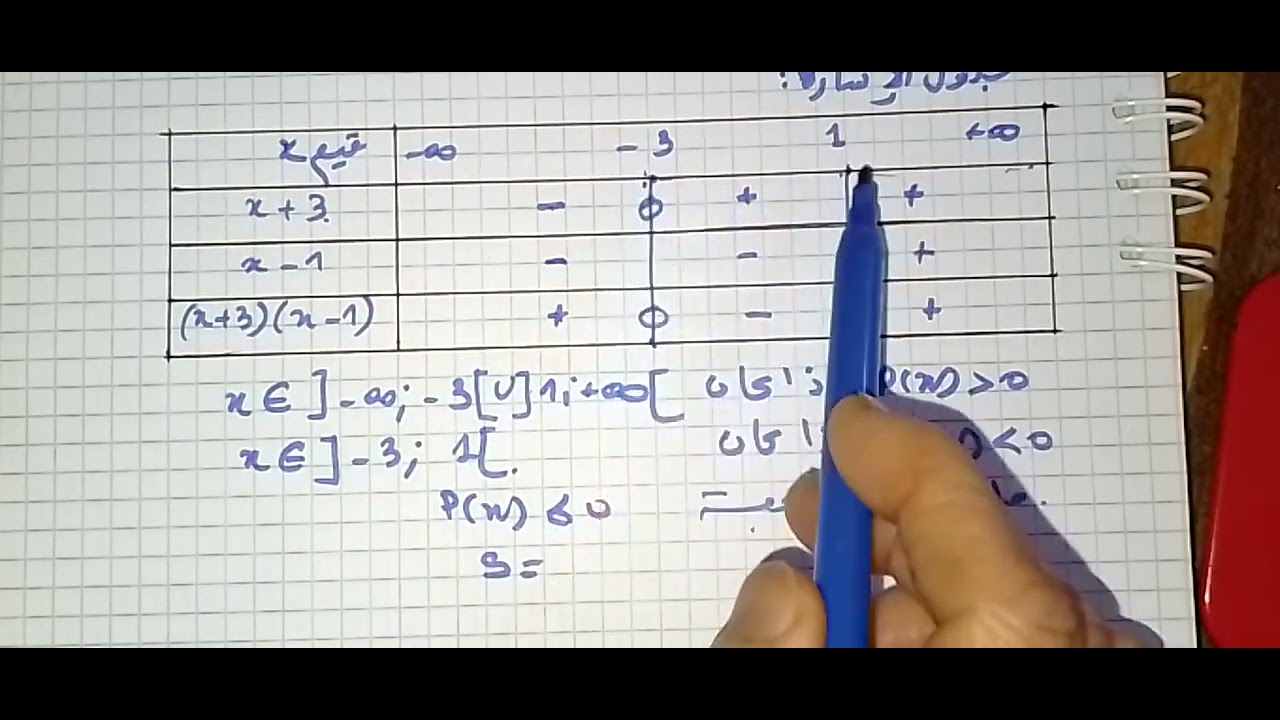 جدول الإشارة:
قيم x -∞ -3 1 +∞
x+3 - 0 + +
x-1 - - +
(x+3)(x-1) + 0 - +
x∈]-∞;-3[∪]1;+∞[ إذا كان P(x)>0
x∈]-3; 1[. إذا كان <0
P(x)≤0
S=